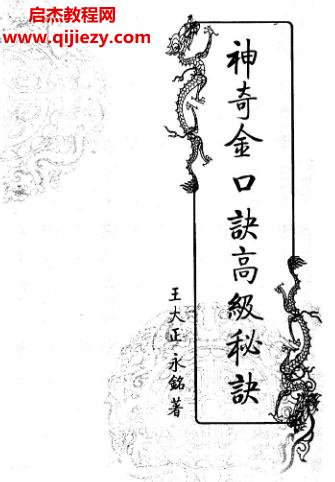 启杰教程网
www.qijiezy.com
神奇金口訣高級秘訣
王大正 永銘著